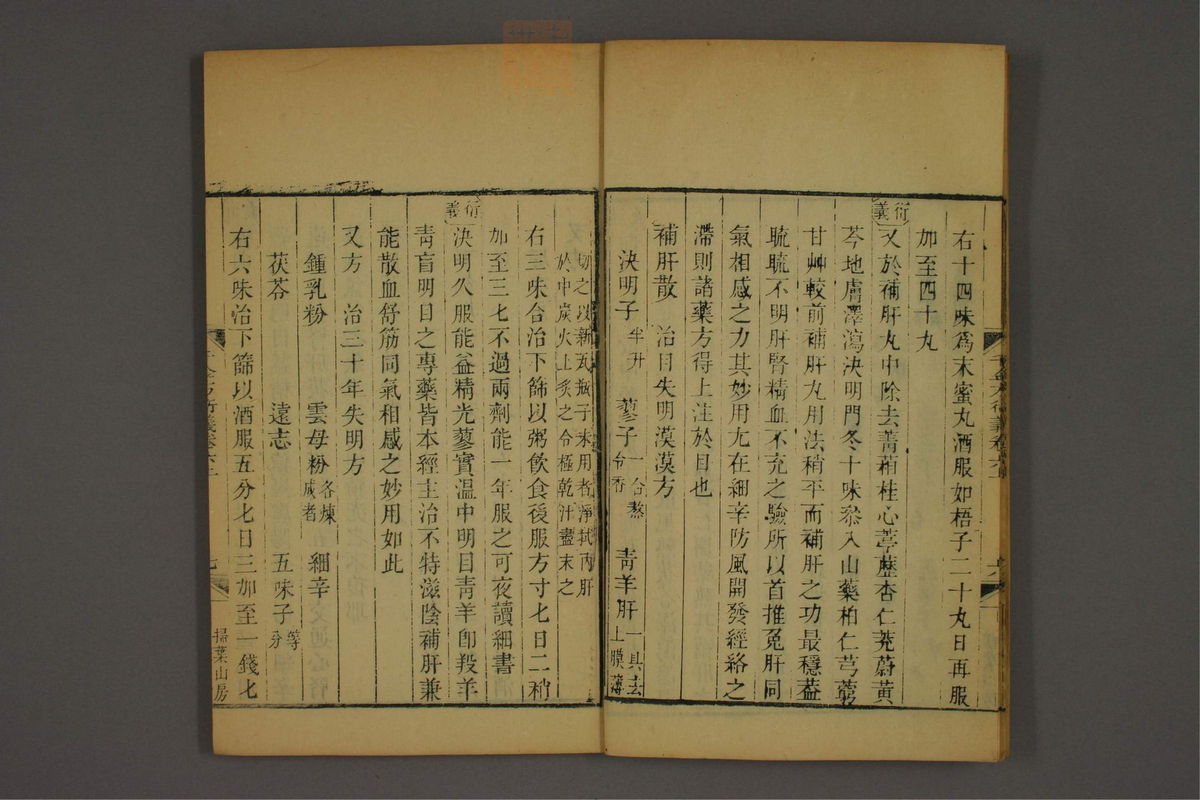 右十四味爲末蜜丸酒服如梧子二十丸日再服
加至四十丸
衍義
又於補肝丸中除去菁葙桂心葶藶杏仁茺蔚黃
芩地膚澤瀉決明門冬十味叅入山藥柏仁芎藭
甘艸較前補肝丸用法稍平而補肝之功最穩葢
䀮䀮不明肝腎精血不充之驗所以首推兔肝同
氣相感之力其妙用尢在細辛防風開發經絡之
滯則諸藥方得上注於目也
補肝散 治目失明漠漠方
決明子半升 蓼子一合熬令香 靑羊肝一具去上膜薄
切之以新瓦瓶子未用者淨拭內肝
於中炭火上炙之令極乾汁盡末之
右三味合治下篩以粥飲食後服方寸七日二稍
加至三七不過兩劑能一年服之可夜讀細書
衍義
決明久服能益精光蓼實溫中明目靑羊卽羖羊
靑盲明目之專藥皆本經主治不特滋陰補肝兼
能散血舒筋同氣相感之妙用如此
又方 治三十年失明方
鍾乳粉 雲母粉各煉成者 細辛
茯苓 遠志 五味子等分
右六味治下篩以酒服五分七日三加至一錢七
千金方衍義卷六上
七
掃葉山房